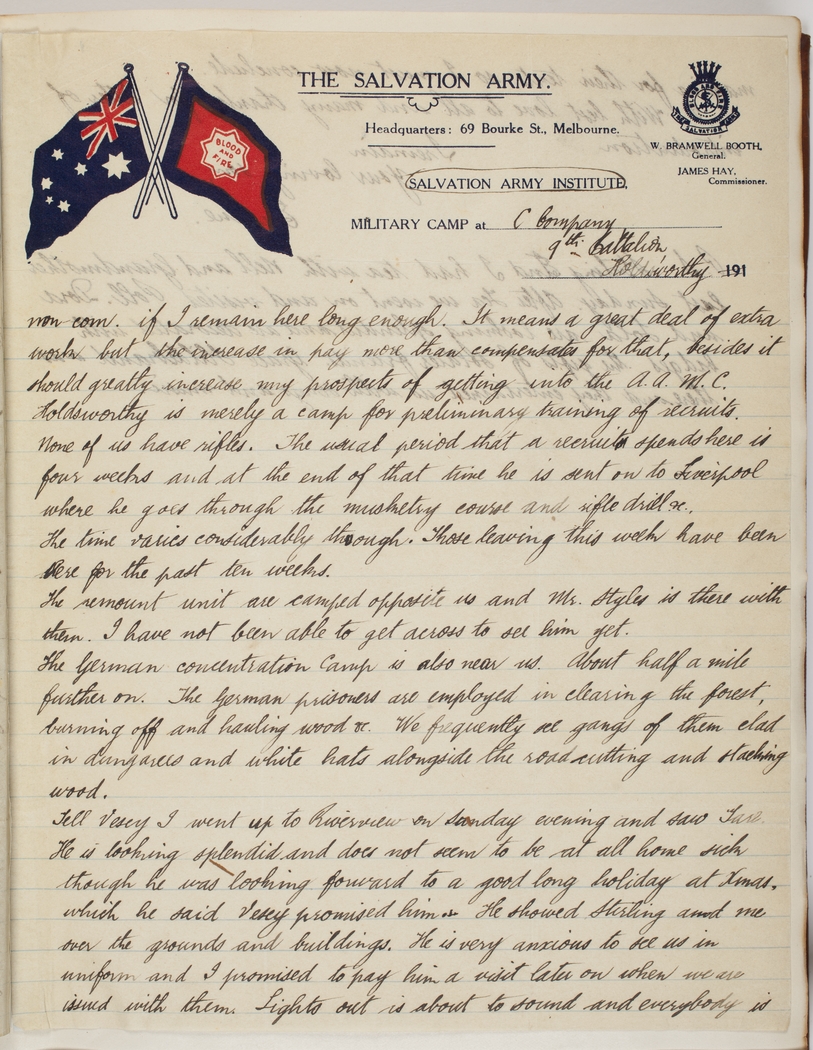 THE SALVATION ARMY.
Headquarters: 69 Bourke St., Melbourne.
BLOOD
AND
FIRE
BLOOD AND FIRE
SALVATION ARMY
W. BRAMWELL BOOTH,
General.
JAMES HAY,
Commissioner.
SALVATION ARMY INSTITUTE,
MILITARY CAMP at C Company
9th Battalion
Holdsworthy 191
non com. if I remain here long enough. It means a great deal of extra
work but the increase in pay more than compensates for that, besides it
should greatly increase my prospects of getting into the A.A.M.C.
Holdsworthy is merely a camp for preliminary training of recruits.
None of us have rifles. The usual period that a recruit spends here is
four weeks and at the end of that time he is sent on to Liverpool
where he goes through the musketry course and rifle drill &c.
The time varies considerably though. Those leaving this week have been
here for the past ten weeks.
The remount unit are camped opposite us and Mr. Styles is there with
them. I have not been able to get across to see him yet.
The German concentration Camp is also near us. About half a mile
further on. The German prisoners are employed in clearing the forest,
burning off and hauling wood &c. We frequently see gangs of them clad
in dungarees and white hats alongside the road cutting and stacking
wood.
Tell Vesey I went up to Riverview on Sunday evening and saw
He is looking splendid and does not seem to be at all home sick
though he was looking forward to a good long holiday at Xmas,
which he said Vesey promised him. He showed Stirling and me
over the grounds and buildings. He is very anxious to see us in
uniform and I promised to pay him a visit later on when we are
issued with them. Lights out is about to sound and everybody is